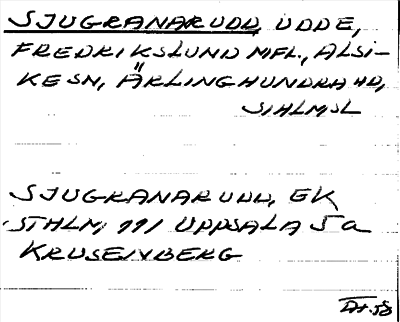 SJUGRANARUDD, UDDE,
FREDRIKSLUND MFL., ALSI-
KE SN, ÄRLINGHUNDRA HD,
STHLMSL
SJUGRANARUDD, EK
STHLM, 111 UPPSALA 5 a
KRUSENBERG